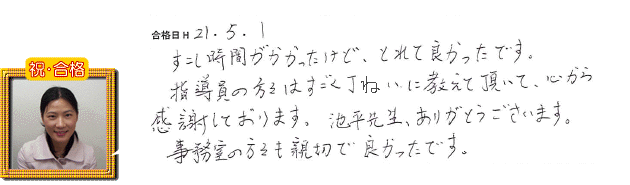 合格日 H 21.5.1
祝・合格
すこし時間がかかったけど、とれて良かったです。
指導員の方々はすごく丁ねいに教えて頂いて、心から
感謝しております。池平先生、ありがとうございます。
事務室の方々も親切で良かったです。